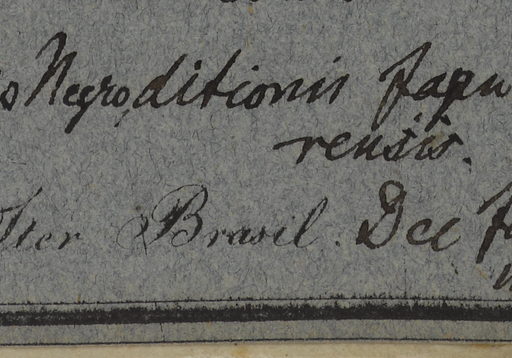 s Negro, ditionis Japu
rensis.
Iter Brasil. Dec